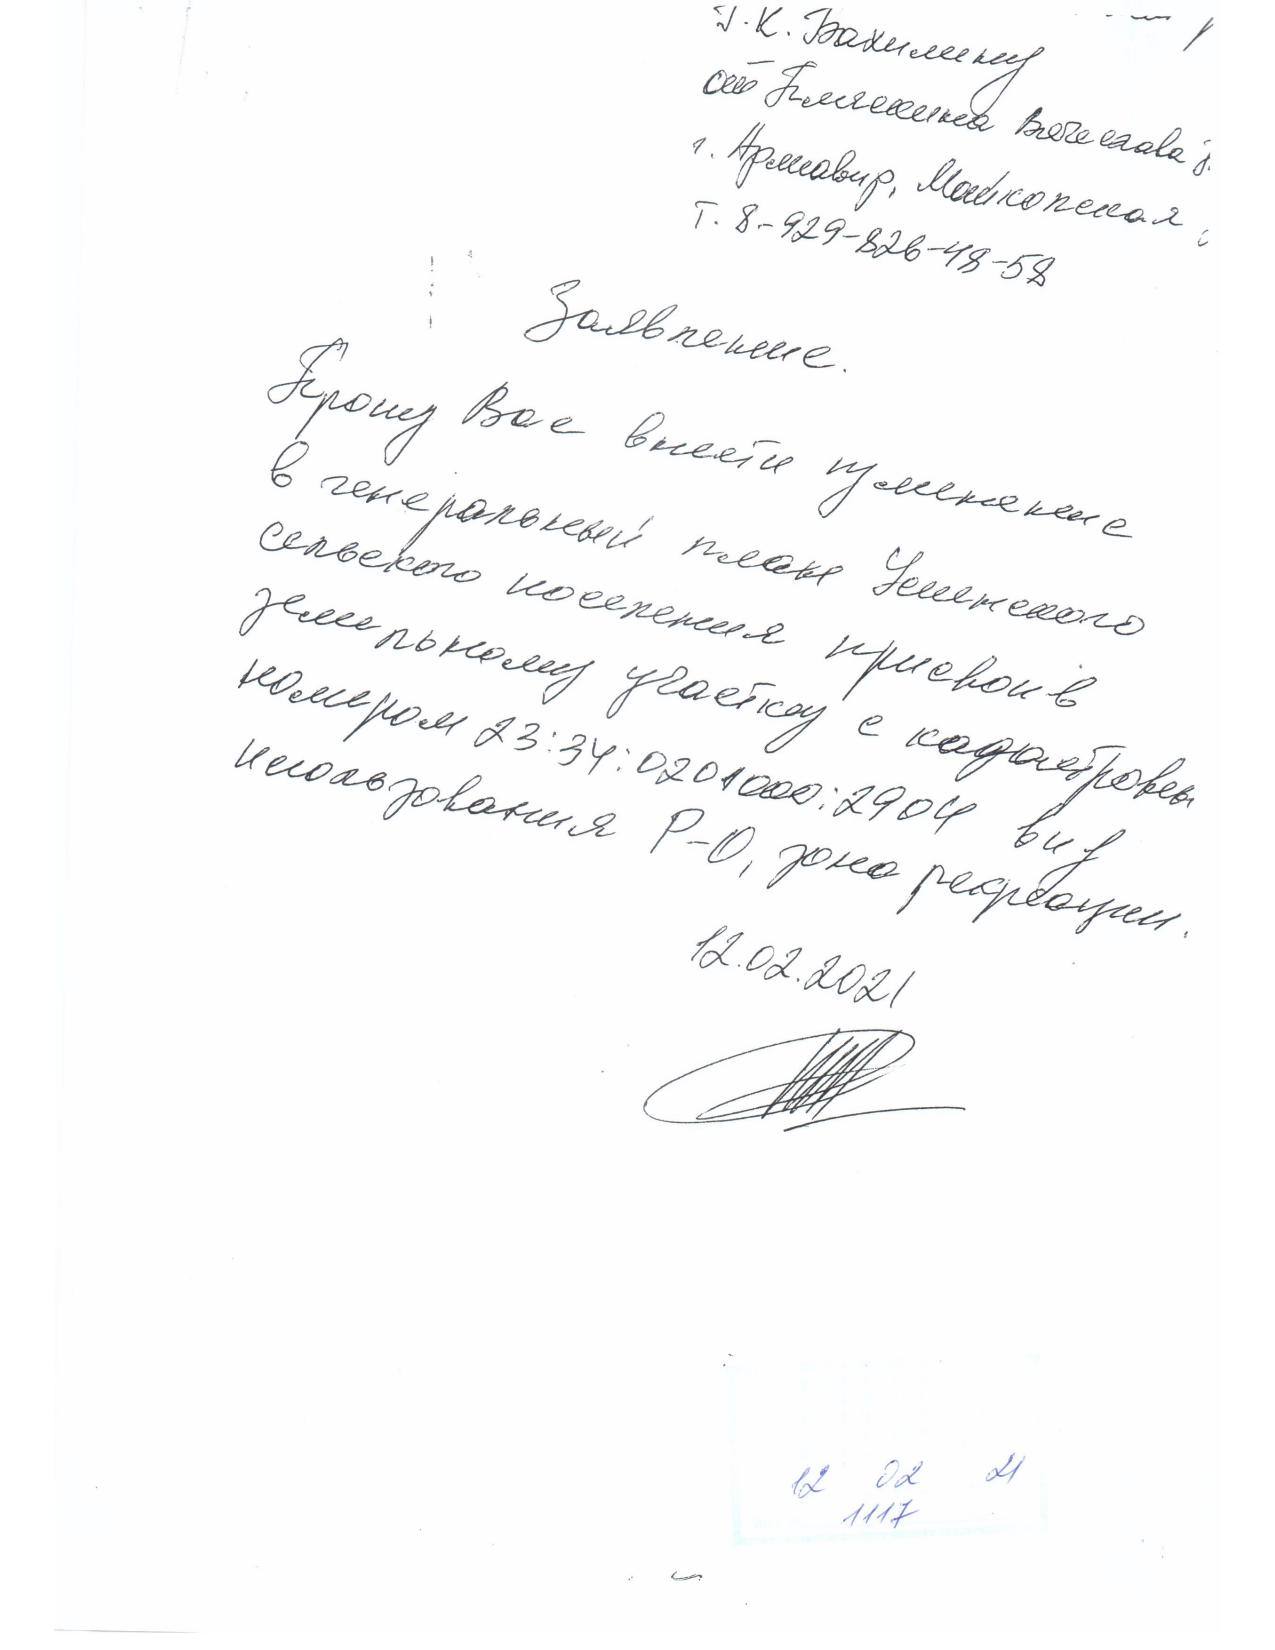 Г.К. Бахилину
от Плужника Вячеслава
г. Армавир, Майкопская
т. 8-929-826-48-58
Заявление.
Прошу Вас внести изменение
в генеральный план Успенского
сельского поселения присвоив
земельному участку с кадастровым
номером 23:34:0201000:2904 вид
использования Р-О, зона рекреации.
12.02.2021
12 02 21
1117